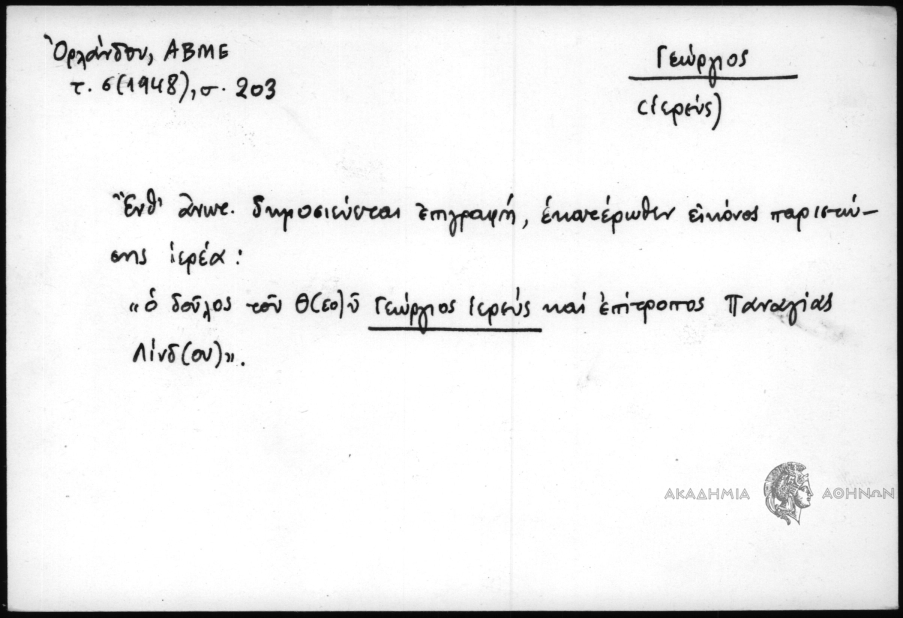 Ὀρλάνδου, ΑΒΜΕ
τ. 6(1948), σ. 203
Γεώργιος
(ἱερεύς)
Ἔνθ' ἄνωτ. δημοσιεύεται ἐπιγραφή, ἑκατέρωθεν εἰκόνος παριστώ-
σης ἱερέα:
«ὁ δοῦλος τοῦ Θ(εο)ῦ Γεώργιος ἱερεύς καί ἐπίτροπος Παναγίας
Λίνδ(ου)».
ΑΚΑΔΗΜΙΑ ΑΘΗΝΩΝ